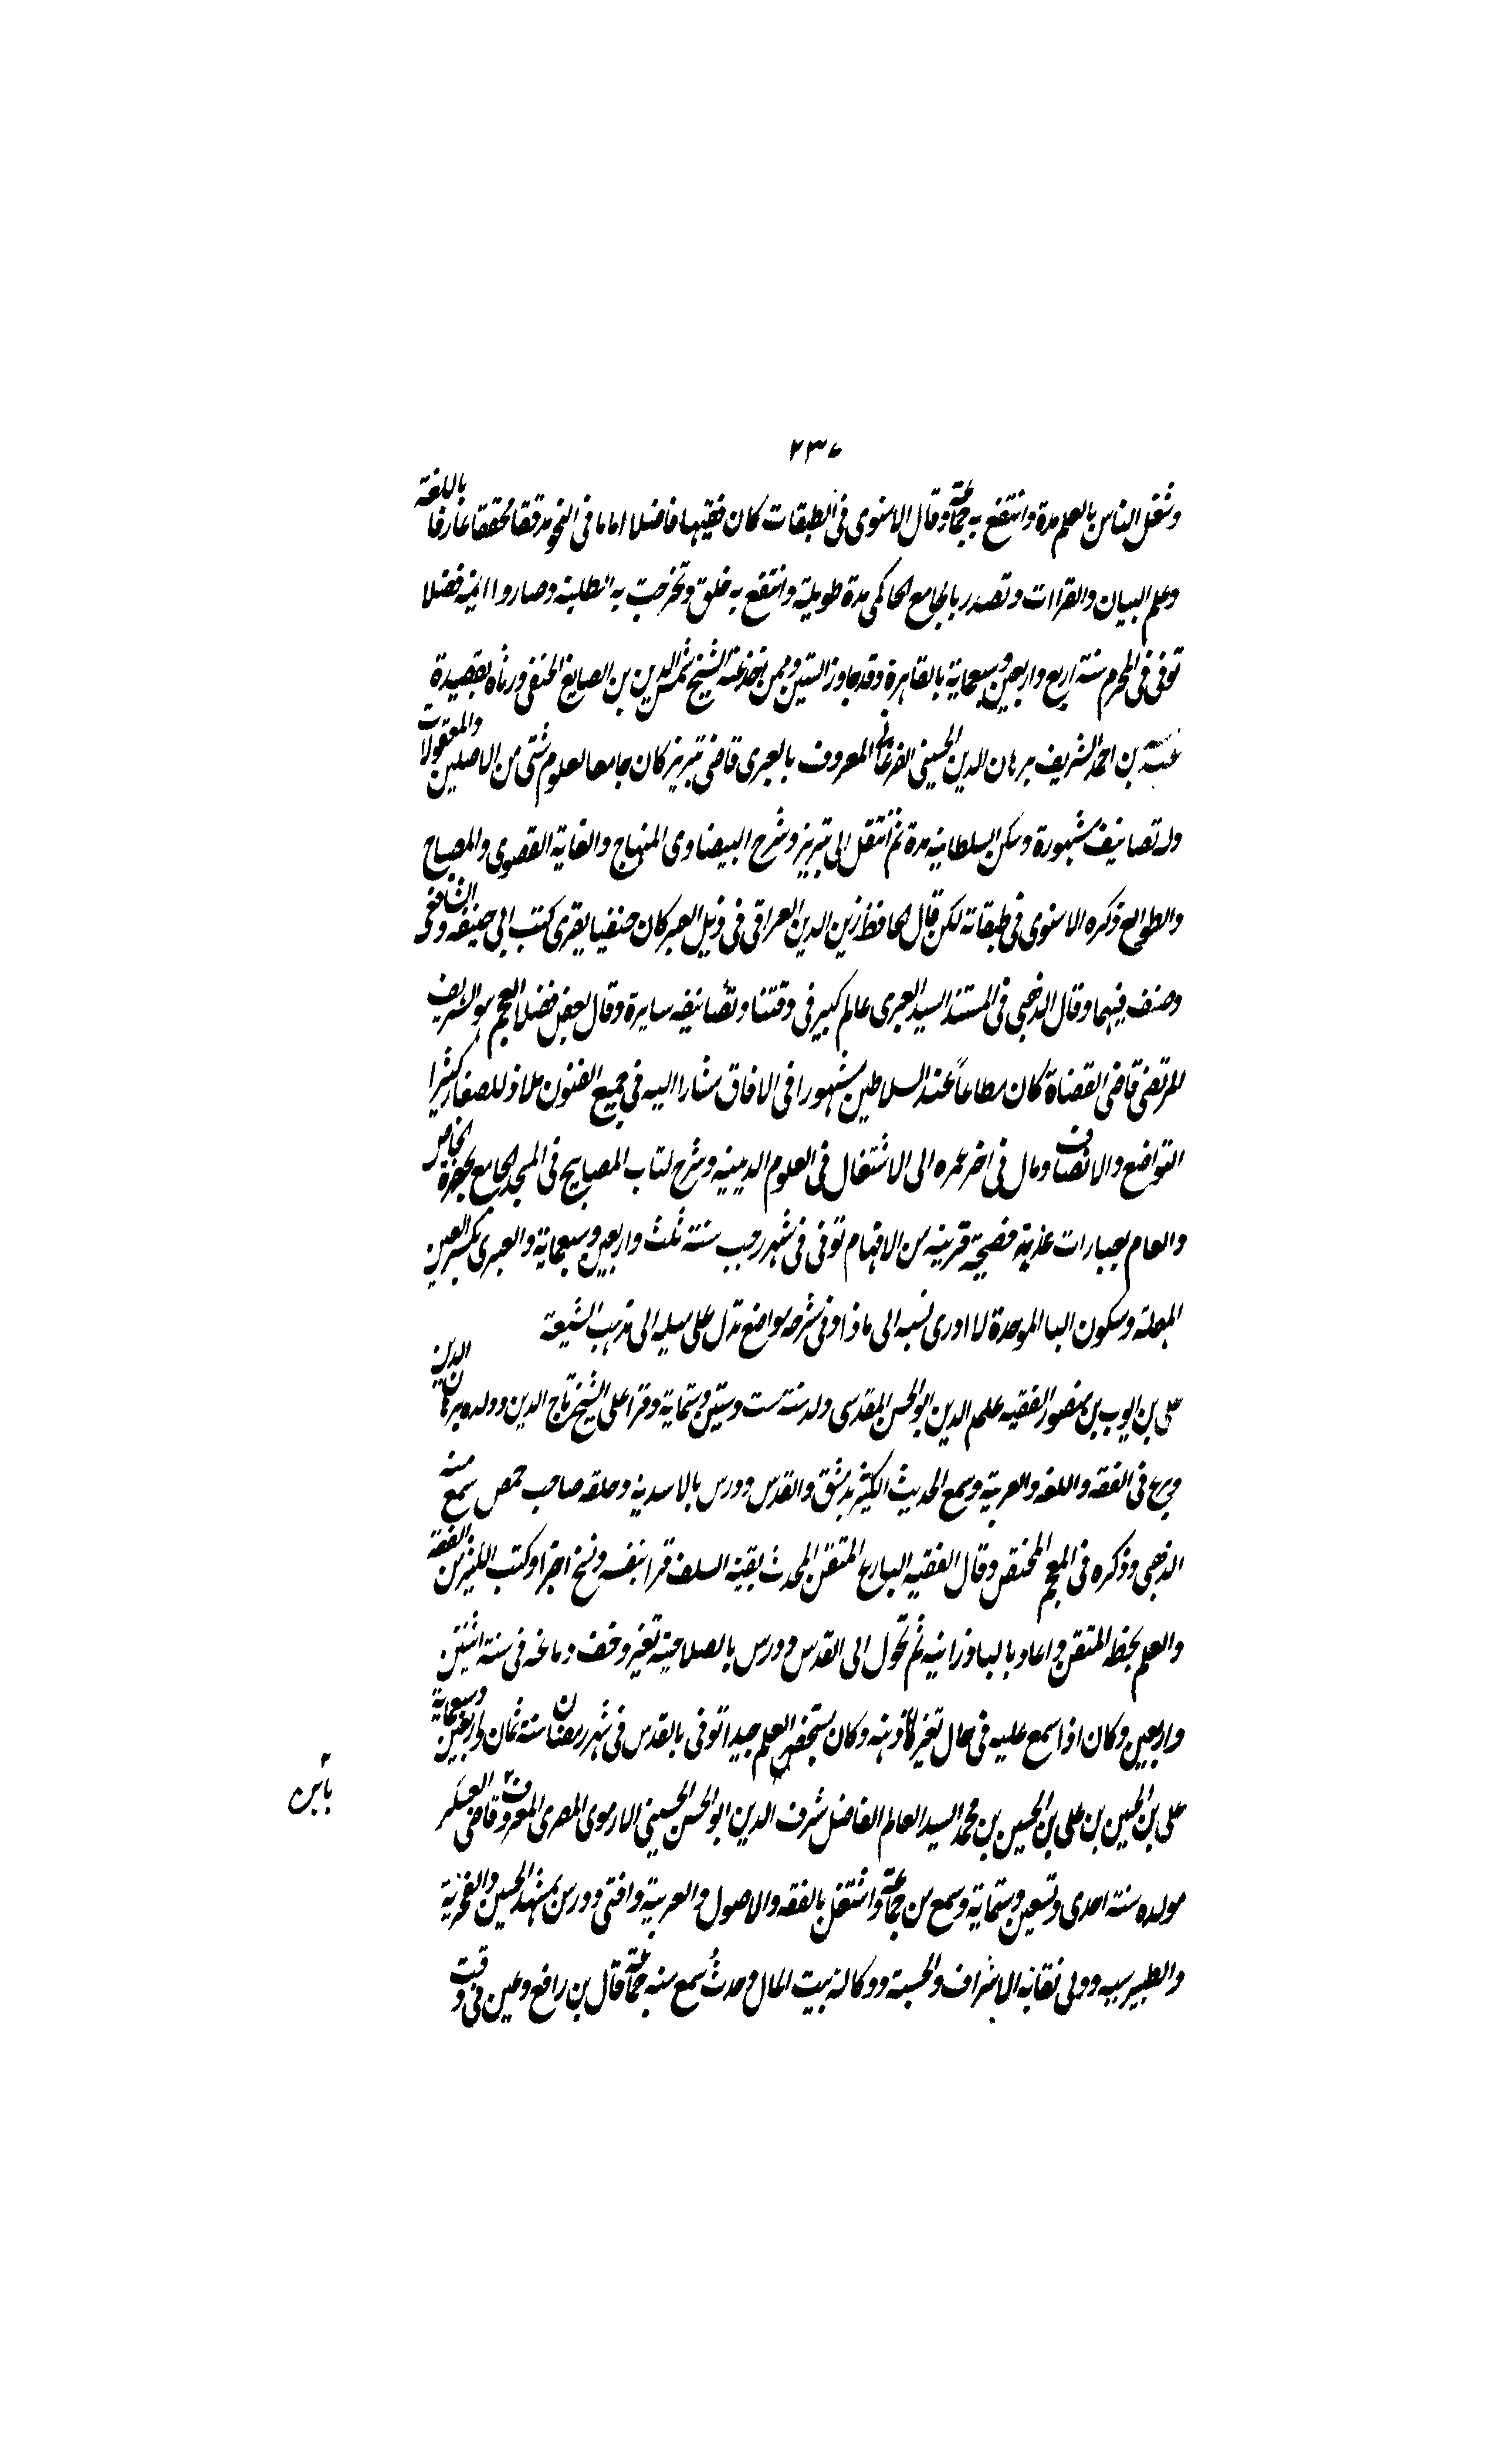 ٢٣٧
وشغل الناس بالعلم مدة وانتفع به جماعة وقال الاسنوى فى الطبقات كان فقيها فاضلا اماما فى النحو مدققا محققا عارفا باللغة
وعلم البيان والقراات وتصدر بالجامع الحاكمى مدة طويلة وانتفع به خلق وتخرجت به الطلبة وصاروا ايمة فضلا
توفى فى المحرم سنة اربع واربعين وسبعماية بالقاهرة وقد جاوز الستين وممن اخذ عنه الشيخ شمس الدين بن الصايغ الحنفى ورثاه بقصيدة
بن احمد الشريف برهان الدين الحسينى الفرغانى المعروف بالعبرى قاضى تبريز كان جامعا لعلوم شتى من الاصلين والمعقولات
وله تصانيف مشهورة وسكن السلطانية مدة ثم انتقل الى تبريز وشرح البيضاوى المنهاج والغاية القصوى والمصباح
والطوالع ذكره الاسنوى فى طبقاته لكن قال الحافظ زين الدين العراقى فى ذيل العبر كان حنفيا يقرى كتب ابى حنيفه و الشافعى
وصنف فيهما وقال الذهبى فى المشتبه السيد العبرى عالم كبير فى وقتنا وتصانيفه سايرة وقال بعض فضلا العجم هو الشريف
المرتضى قاضى القضاة كان مطاعاً عند السلاطين مشهورا فى الافاق مشارا اليه فى جميع الفنون ملاذ للصغار كثيرا
التواضع والانصاف ومال فى اخر عمره الى الاشتغال فى العلوم الدينيه وشرح لكتاب المصابيح فى المسجد الجامع بحضرة الخاص
والعام بعبارات عذبة فصيحة قريبه من الافهام توفى فى شهر رجب سنة ثلث واربعين وسبعماية والعبرى بكسر العين
المهملة وسكون البا الموحدة لا ادرى نسبه الى ماذا وفى شرحه مواضع تدل على ميله الى مذهب الشيعة
على بن ايوب بن منصور الفقيه علم الدين ابو الحسن المقدسى ولد سنة ست وستين وستماية وقرا على الشيخ تاج الدين وولده برهان الدين
وبرع فى الفقه واللغه والعربية وسمع الحديث الكثير بدمشق والقدس ودرس بالاسدية وحلقه صاحب حمص سمع منه
الذهبى وذكره فى المعجم المختص وقال الفقيه البارع المتقن المحدث بقية السلف قرا بنفسه ونسخ اجزا وكتب الكثير من الفقه
والعلم بخطه المتقن واعاد بالباذرانيه ثم تحول الى القدس ودرس بالصلاحية تغير وخف دماغه فى سنة اثنتين
واربعين وكان اذا سمع عليه فى حال تغير ذهنه وكان يستحضر العلم جيدا توفى بالقدس فى شهر رمضان سنة ثمان واربعين وسبعماية
على بن الحسين بن على بن الحسين بن محمد السيد العالم الفاضل شرف الدين ابو الحسن الحسينى الارموى المصرى المعروف قاضى العسكر
مولده سنة احدى وتسعين وستماية وسمع من جماعة واشتغل بالفقه والاصول والعربية وافتى ودرس بمشهد الحسين والفخرية
والطيبرسيه وولى نقابة الاشراف والحسبة ووكالة بيت المال وحدث سمع منه جماعة قال بن رافع وعين فى وقت